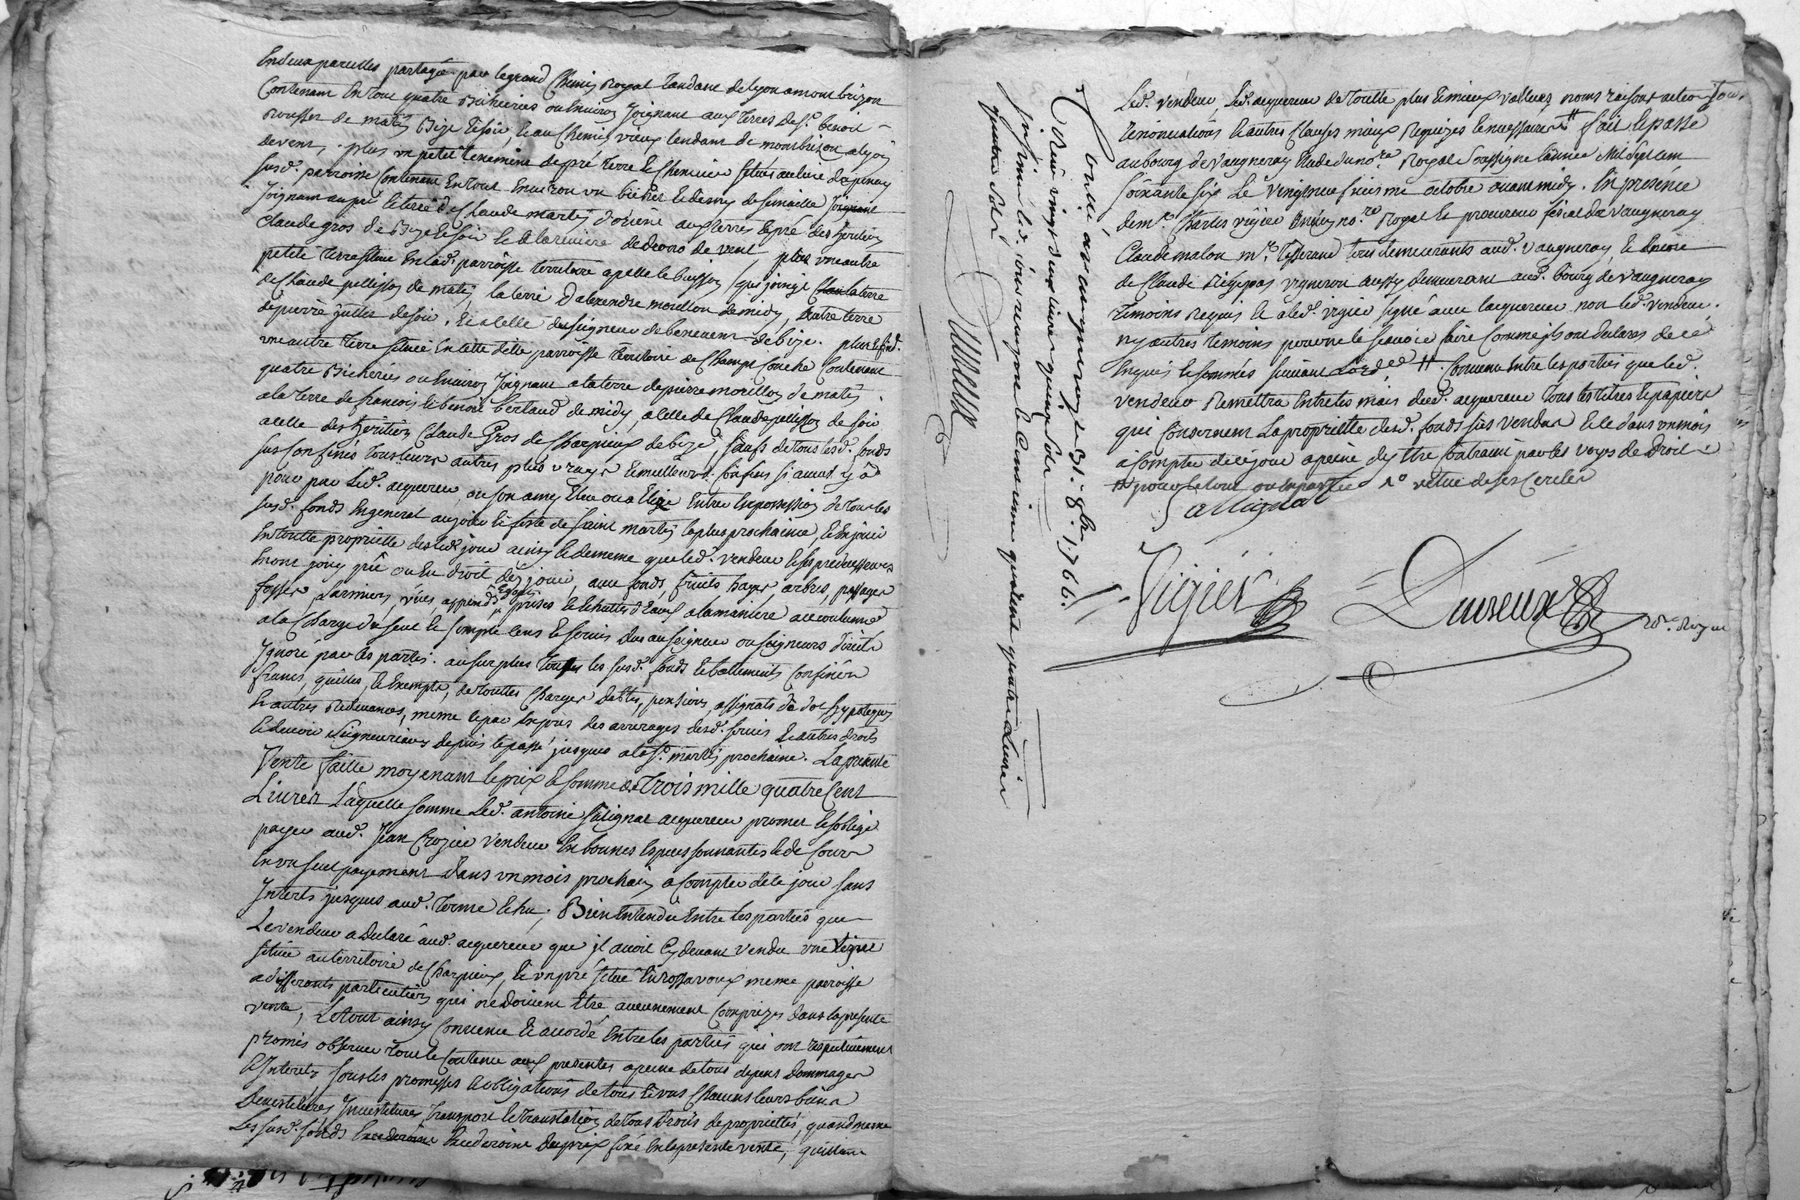 En deux parcelles partagée par le grand Chemin Royal tandant de Lyon a montbrizon
Contenant En tout quatre Bicherées ou Environ Joignant aux terres de Sr. benoit
Rousset de matin Bize & soir, & au Chemin vieux tendant de montbrison a Lyon
de vent, plus un petit tenement de pré terre & Chenevier situés au lieu
susd. parroisse Contenant En tout Environ un bichet & demy de semaille Joignant
Joignant au pré & terre de Claude martin d'orient aux terres & pré des heritiers
Claude gros de Bize & soir & la Rivière de vent, plus une autre
petite terre située En lad. parroisse territoire apellé le buisson qui joingt la terre
de Claude pellisson de matin, la terre d'alexendre mouillon de midy, & autre terre
de pierre de soir, & a celle du seigneur de benevent de bize. plus & fin.
une autre terre située En cette dette parroisse territoire de Champt Couche Contenant
quatre Bicherées ou Environ Joignant a la terre de pierre mouillon de matin
a la terre de francois & benoit bertaud de midy, a celle de Claude pellisson de soir
a celle des heritiers Claude Gros de Charpieux de bize, sauf de tous lesd. fonds
sus confinés tous leurs autres plus vrays & meilleurs Confins si aucun y a
pour par Led. acquereur ou son amy Elu ou a Elire Entrer En possession de tous les
susd. fonds En general au jour & feste de saint martin le plus prochaine & En jouir
En toutte proprietté des led. jour ainsy & de meme que led. vendeur & ses predecesseurs
En ont jouy pû ou Eu droit de jouir, aux fonds, fruits hayes, arbres, passages
fossés, larmiers, vües, appendes, prises & chuttes d'Eaux a la maniere accoutumée
a la Charge du seul & simple Cens & servis dus au seigneur ou seigneurs directs
Ignoré par les parties. au surplus tous les susd. fonds & battiments Confinés
francs, quittes, & Exempts, de touttes Charges dettes, pensions, assignats de dot hypoteques
& autres Redevances, meme & par Exprès des arrerages desd. servis & autres droits
& devoirs seigneuriaux depuis le passé jusques a la St. martin prochaine. La presente
Vente faitte moyenant le prix & somme de Trois mille quatre Cent
Livres Laquelle somme Led. antoine Salignat acquereur promet & s'oblige
payer aud. Jean Crozier vendeur En bonnes Especes sonnantes & de Cours
En un seul payement dans un mois prochain a Compter de ce jour sans
Interets jusques aud. terme Echu; Bien Entendu Entre les parties que
Le vendeur a declaré aud. acquereur que jl avoit Cy devant vendu une Vigne
située au territoire de Charpieux, & un pré situé En Rossavoux meme parroisse
a differents particuliers qui ne doivent Etre aucunement Comprizes dans la presente
vente, Le tout ainsy Convenu & accordé Entre les parties qui ont respectivement
promis observer tout le Contenu aux presentes a peine de tous depens dommages
& Interets, sous les promesses & obligations de tous & uns Chacuns leurs biens
Devestitures Investitures transport & translation de tous droits de proprietté, quand meme
Les susd. fonds Excederoient du prix fixé En la presente vente, quittent
Toutié a Vaugneray ce 31e. 8bre. 1766.
& Reçu vingt deux livres quinze sols
Insinué led. jour reçu pour le Centieme quarante quatre Livres
quatre sols
Led. vendeur Led. acquereur de toutte plus & mieux valluë noms raisons action tous
renonciations & autres Clauses mieux Requizes & necessaires # fait & passé
au bourg de Vaugneray Etude du nore. Royal soussigné L'année Mil sept cent
soixante six Le vingt neufvieme octobre avant midy. En presence
de mr. Charles vigier ancien nore. Royal & procureur fiscal de Vaugneray
Claude malon mre. tisserand tous demeurants aud. Vaugneray, &
de Claude vigneron aussy demeurant aud. bourg de Vaugneray
témoins Requis & a led. vigier signé avec lacquereur non led. vendeur,
ny autres témoins pour ne le scavoir faire Comme jls ont declarés de ce
Enquis & sommés suivant L'orde. # Convenu Entre les parties que led.
vendeur Remettra Entre les mains dud. acquereur tous les titres & papiers
qui Conservent La proprietté desd. fonds sus vendus & ce dans un mois
a Compter de ce jour a peine d'y Etre Contraint par les voyes de droit
# pour le tout ou En partie
Salignat
Vigier
Duvreux
nore. Royal